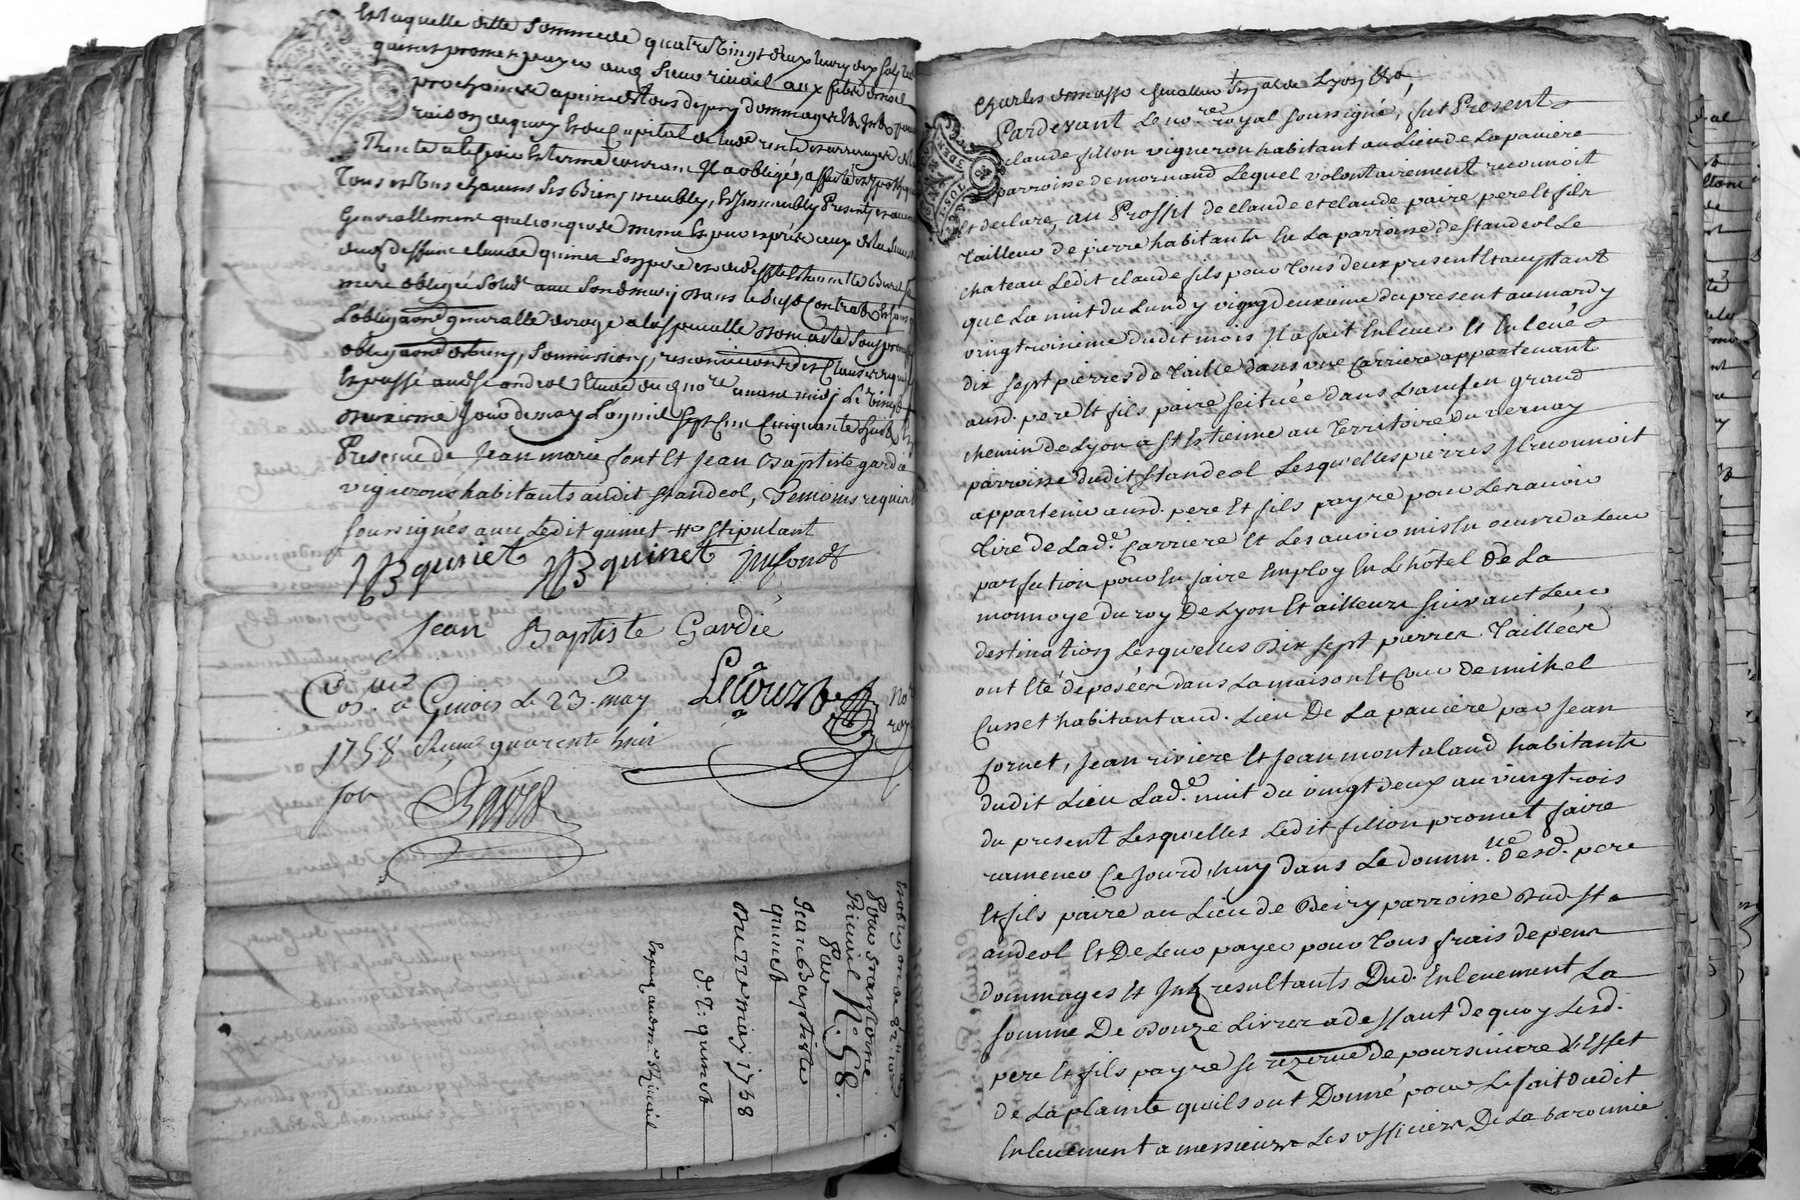 Et laquelle ditte somme de quatre Vingt deux livres dix sols led.
quinet promet payer aud. Sieur rivail aux fetes de noel
prochaine a peine de tous depens dommages et Int.
Trente a
Tous et uns chacuns ses Biens meubles, et Immeubles Presents et avenir
Generallement quelconques de meme Et par exprés ceux de la
dud. deffunt claude quinet son pere
mere obligée solid. avec son d. mary dans le susd. Contrat Et sans que
L'obligaõn generalle deroge a la specialle
obligaõn de biens, soumissions, renonciaõns et Clauses requises
Et passé aud. St andeol Etude du d. no.re avant midy Le Vingt
deuxieme Jour de may L'an mil sept Cent Cinquante huit En
Presence de Jean marie font Et Jean Baptiste gardie
vignerons habitants audit Standeol, Temoins requis
soussignés avec Ledit quinet stipulant
JB quinet JB quinet JMfond
Jean Baptiste Gardié
Con.lé a Givors le 23. may
1758 Reçu quarente huit
sols
Lecourt No.re roy.
Obligaõn de 82 ll 10 s
Pour
Rivail No. 58.
Par
Jean Baptiste
quinet
Du 22 may 1758
d. T: quinet
Expéd. aud. m.r Rivail
Charles demasso senechal de Lyon &a,
Pardevant Le no.re royal soussigné, fut Present
claude fillon vigneron habitant au Lieu de La paviere
parroisse de mornand Lequel volontairement reconnoit
Et declare, au Proffit de claude et claude paire pere Et fils
Tailleur de pierre habitants En La parroisse de Standeol Le
chateau Ledit claude fils pour Tous deux present Et acceptant
que La nuit du Lundy vingt deuxieme du present au mardy
vingt troisieme dudit mois Il a fait Enlever Et Enlevé
dix sept pierres de Taille dans une Carriere appartenant
ausd. pere Et fils paire scituée dans L'ancien grand
chemin de Lyon a St Estienne au Territoire du vernay
parroisse dudit Standeol Lesquelles pierres Il reconnoit
appartenir ausd. pere Et fils payre pour Les avoir
Tiré de Lad.e Carriere Et Les avoir mis En oeuvre a Leur
par faction pour En faire Employ En L'hôtel de La
monnoye du roy De Lyon Et ailleurs suivant Leur
destination Lesquelles Dix sept pierres Taillées
ont Eté deposées dans La maison Et Cour de mihel
Cusset habitant aud. Lieu De La paviere par Jean
fornet, Jean riviere Et Jean montaland habitants
dudit Lieu Lad.e nuit du vingt deux au vingt trois
du present Lesquelles Ledit fillon promet faire
ramener Ce Jourd'huy dans Le domm.lle desd. pere
Et fils paire au Lieu de Beiry parroisse dud. St
andeol Et De Leur payer pour Tous frais depens
Dommages Et Int. resultants Dud. Enlevement La
somme De Douze Livres a deffaut de quoy Lesd.
pere Et fils payre se rezerve de poursuivre L'Effet
de La plainte qu'ils ont Donné pour Le fait dudit
Enlevement a messieurs Les officiers De La baronnie